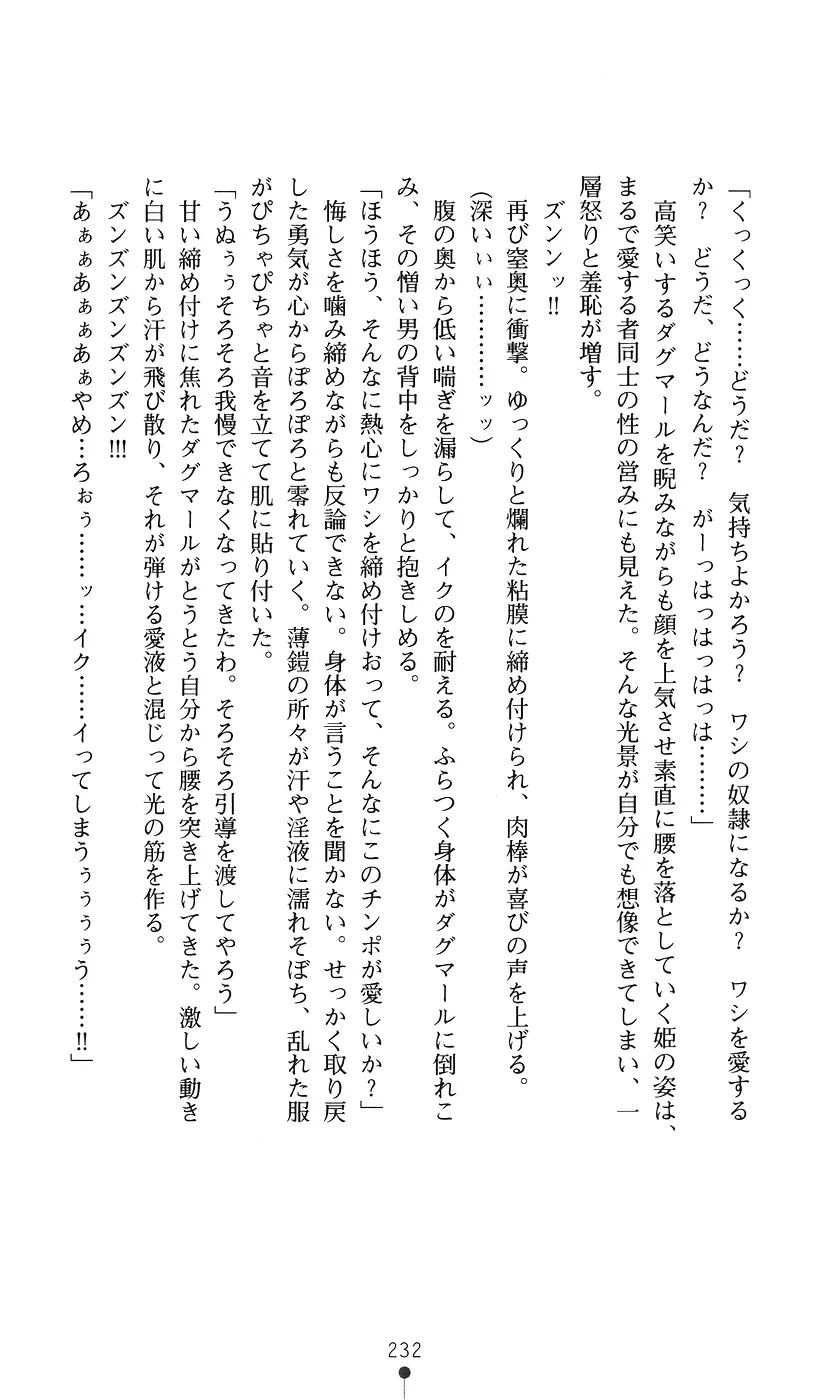 「くっくっく……どうだ？　気持ちよかろう？　ワシの奴隷になるか？　ワシを愛する
か？　どうだ、どうなんだ？　がーっはっはっはっは………」
　高笑いするダグマールを睨みながらも顔を上気させ素直に腰を落としていく姫の姿は、
まるで愛する者同士の性の営みにも見えた。そんな光景が自分でも想像できてしまい、一
層怒りと羞恥が増す。
　ズンンッ!!
　再び窒奥に衝撃。ゆっくりと爛れた粘膜に締め付けられ、肉棒が喜びの声を上げる。
（深いぃぃ…………ッッ）
　腹の奥から低い喘ぎを漏らして、イクのを耐える。ふらつく身体がダグマールに倒れこ
み、その憎い男の背中をしっかりと抱きしめる。
「ほうほう、そんなに熱心にワシを締め付けおって、そんなにこのチンポが愛しいか？」
　悔しさを噛み締めながらも反論できない。身体が言うことを聞かない。せっかく取り戻
した勇気が心からぽろぽろと零れていく。薄鎧の所々が汗や淫液に濡れそぼち、乱れた服
がぴちゃぴちゃと音を立てて肌に貼り付いた。
「うぬぅぅそろそろ我慢できなくなってきたわ。そろそろ引導を渡してやろう」
　甘い締め付けに焦れたダグマールがとうとう自分から腰を突き上げてきた。激しい動き
に白い肌から汗が飛び散り、それが弾ける愛液と混じって光の筋を作る。
　ズンズンズンズンズン!!!
「あぁぁあぁぁあぁやめ…ろぉぅ……ッ…イク……イってしまうぅぅぅぅう……!!」
232